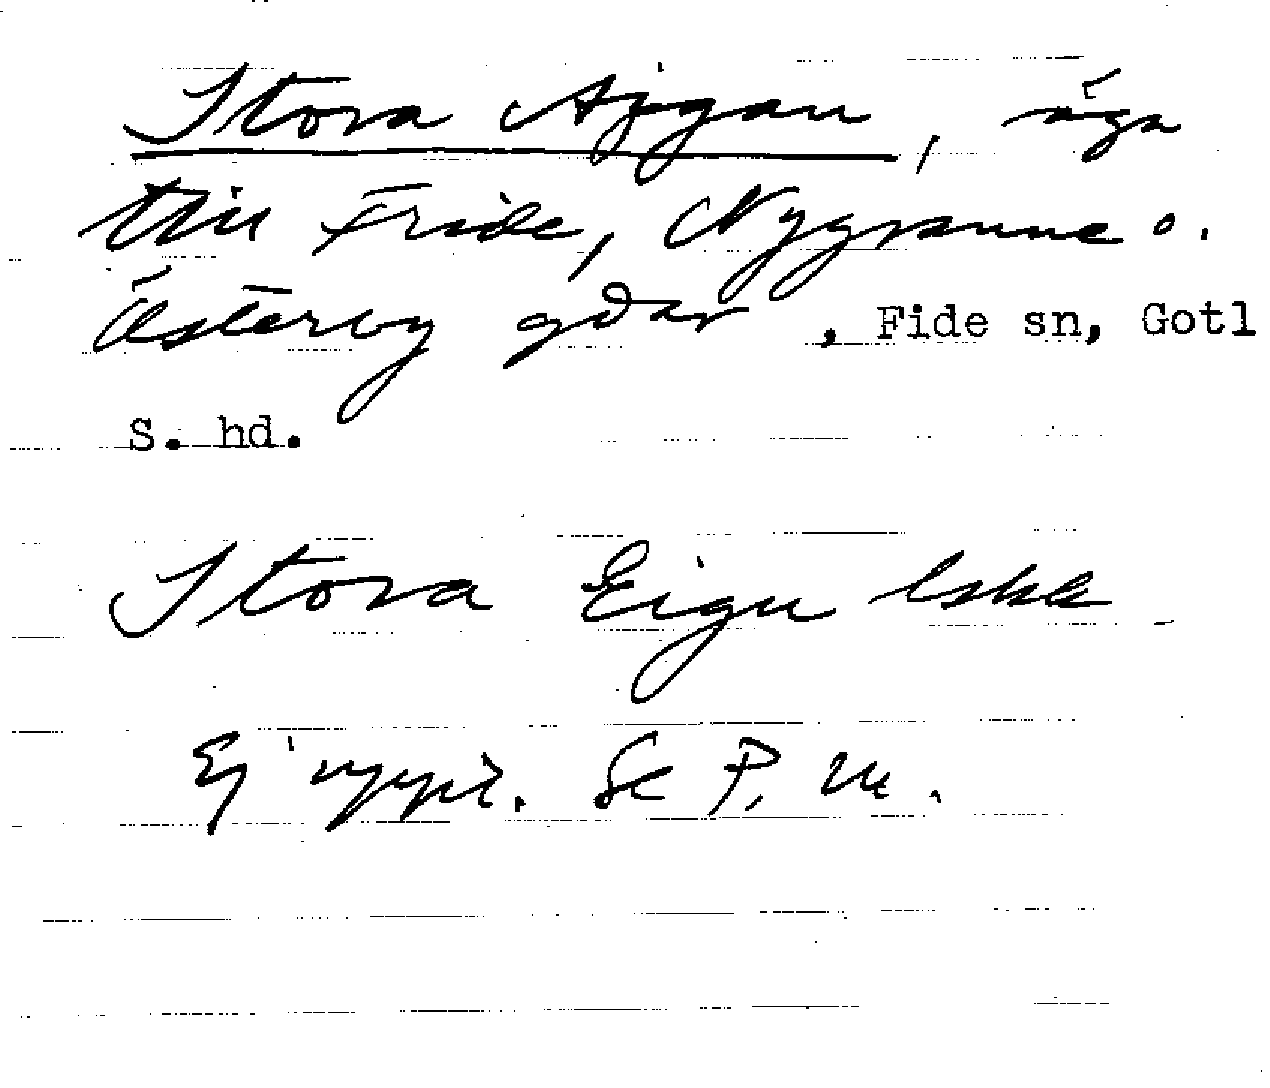 Stora Ajgan, äga
till Fride, Nygranne o.
Österby gdar, Fide sn, Gotl
S. hd.
Stora Eigu
Ej uppt. Se P. m.